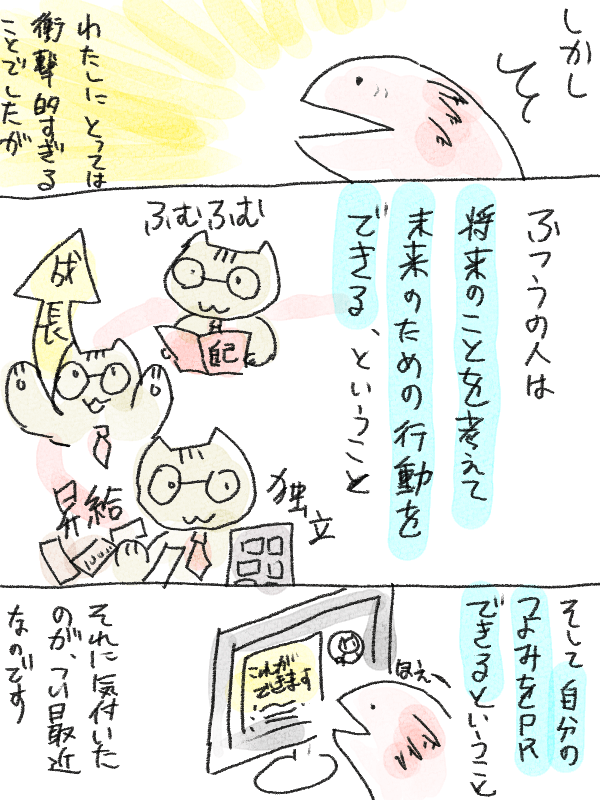 しかし
そして
わたしにとっては
衝撃的すぎる
ことでしたが
ふつうの人は
将来のことを考えて
未来のための行動を
できる、ということ
ふむふむ
自己
成長
昇給
独立
そして自分の
つよみをPR
できるということ
ほえー
これが
できます
それに気付いた
のが、つい最近
なのです